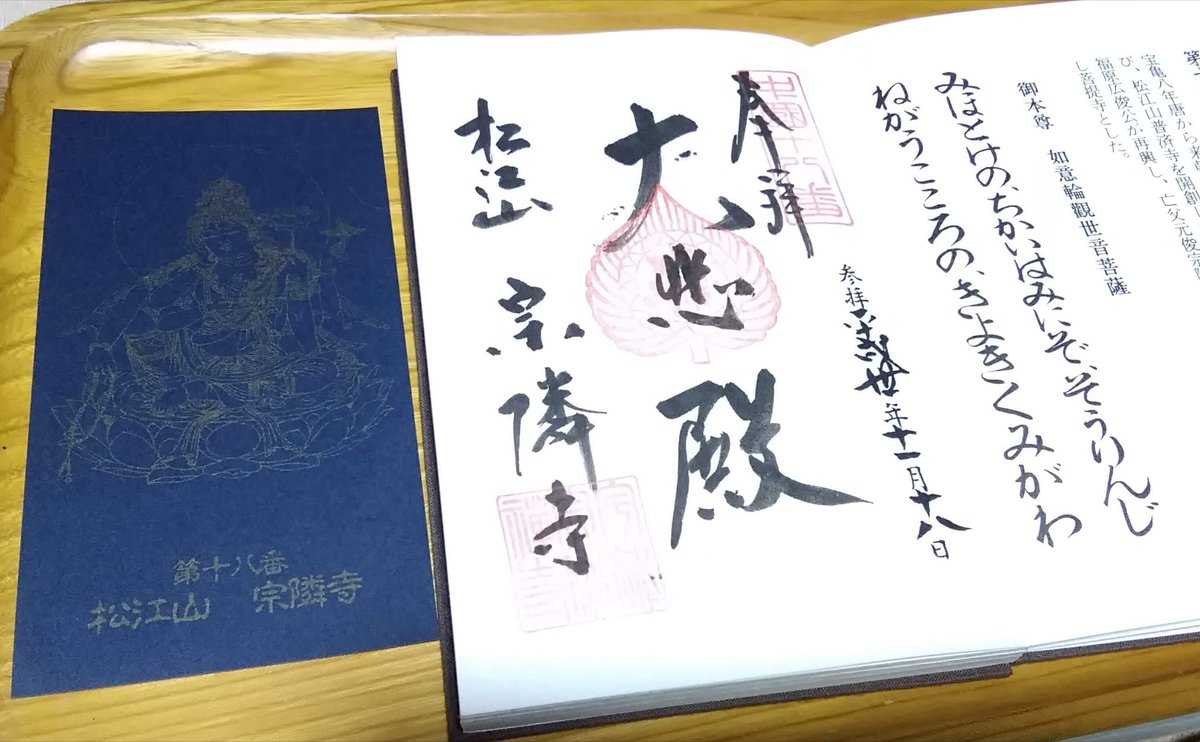 宝亀八年唐から
び、松江山普済寺を開創
福原広俊公が再興し、亡父元俊宗
し菩提寺とした。
御本尊 如意輪觀世音菩薩
みほとけの、ちかいはみにぞ、そうりんじ
ねがうこころの、きよきくみがわ
参拝平成丗年十一月十八日
奉拝
大悲殿
松江山 宗隣寺
第十八番
松江山 宗隣寺